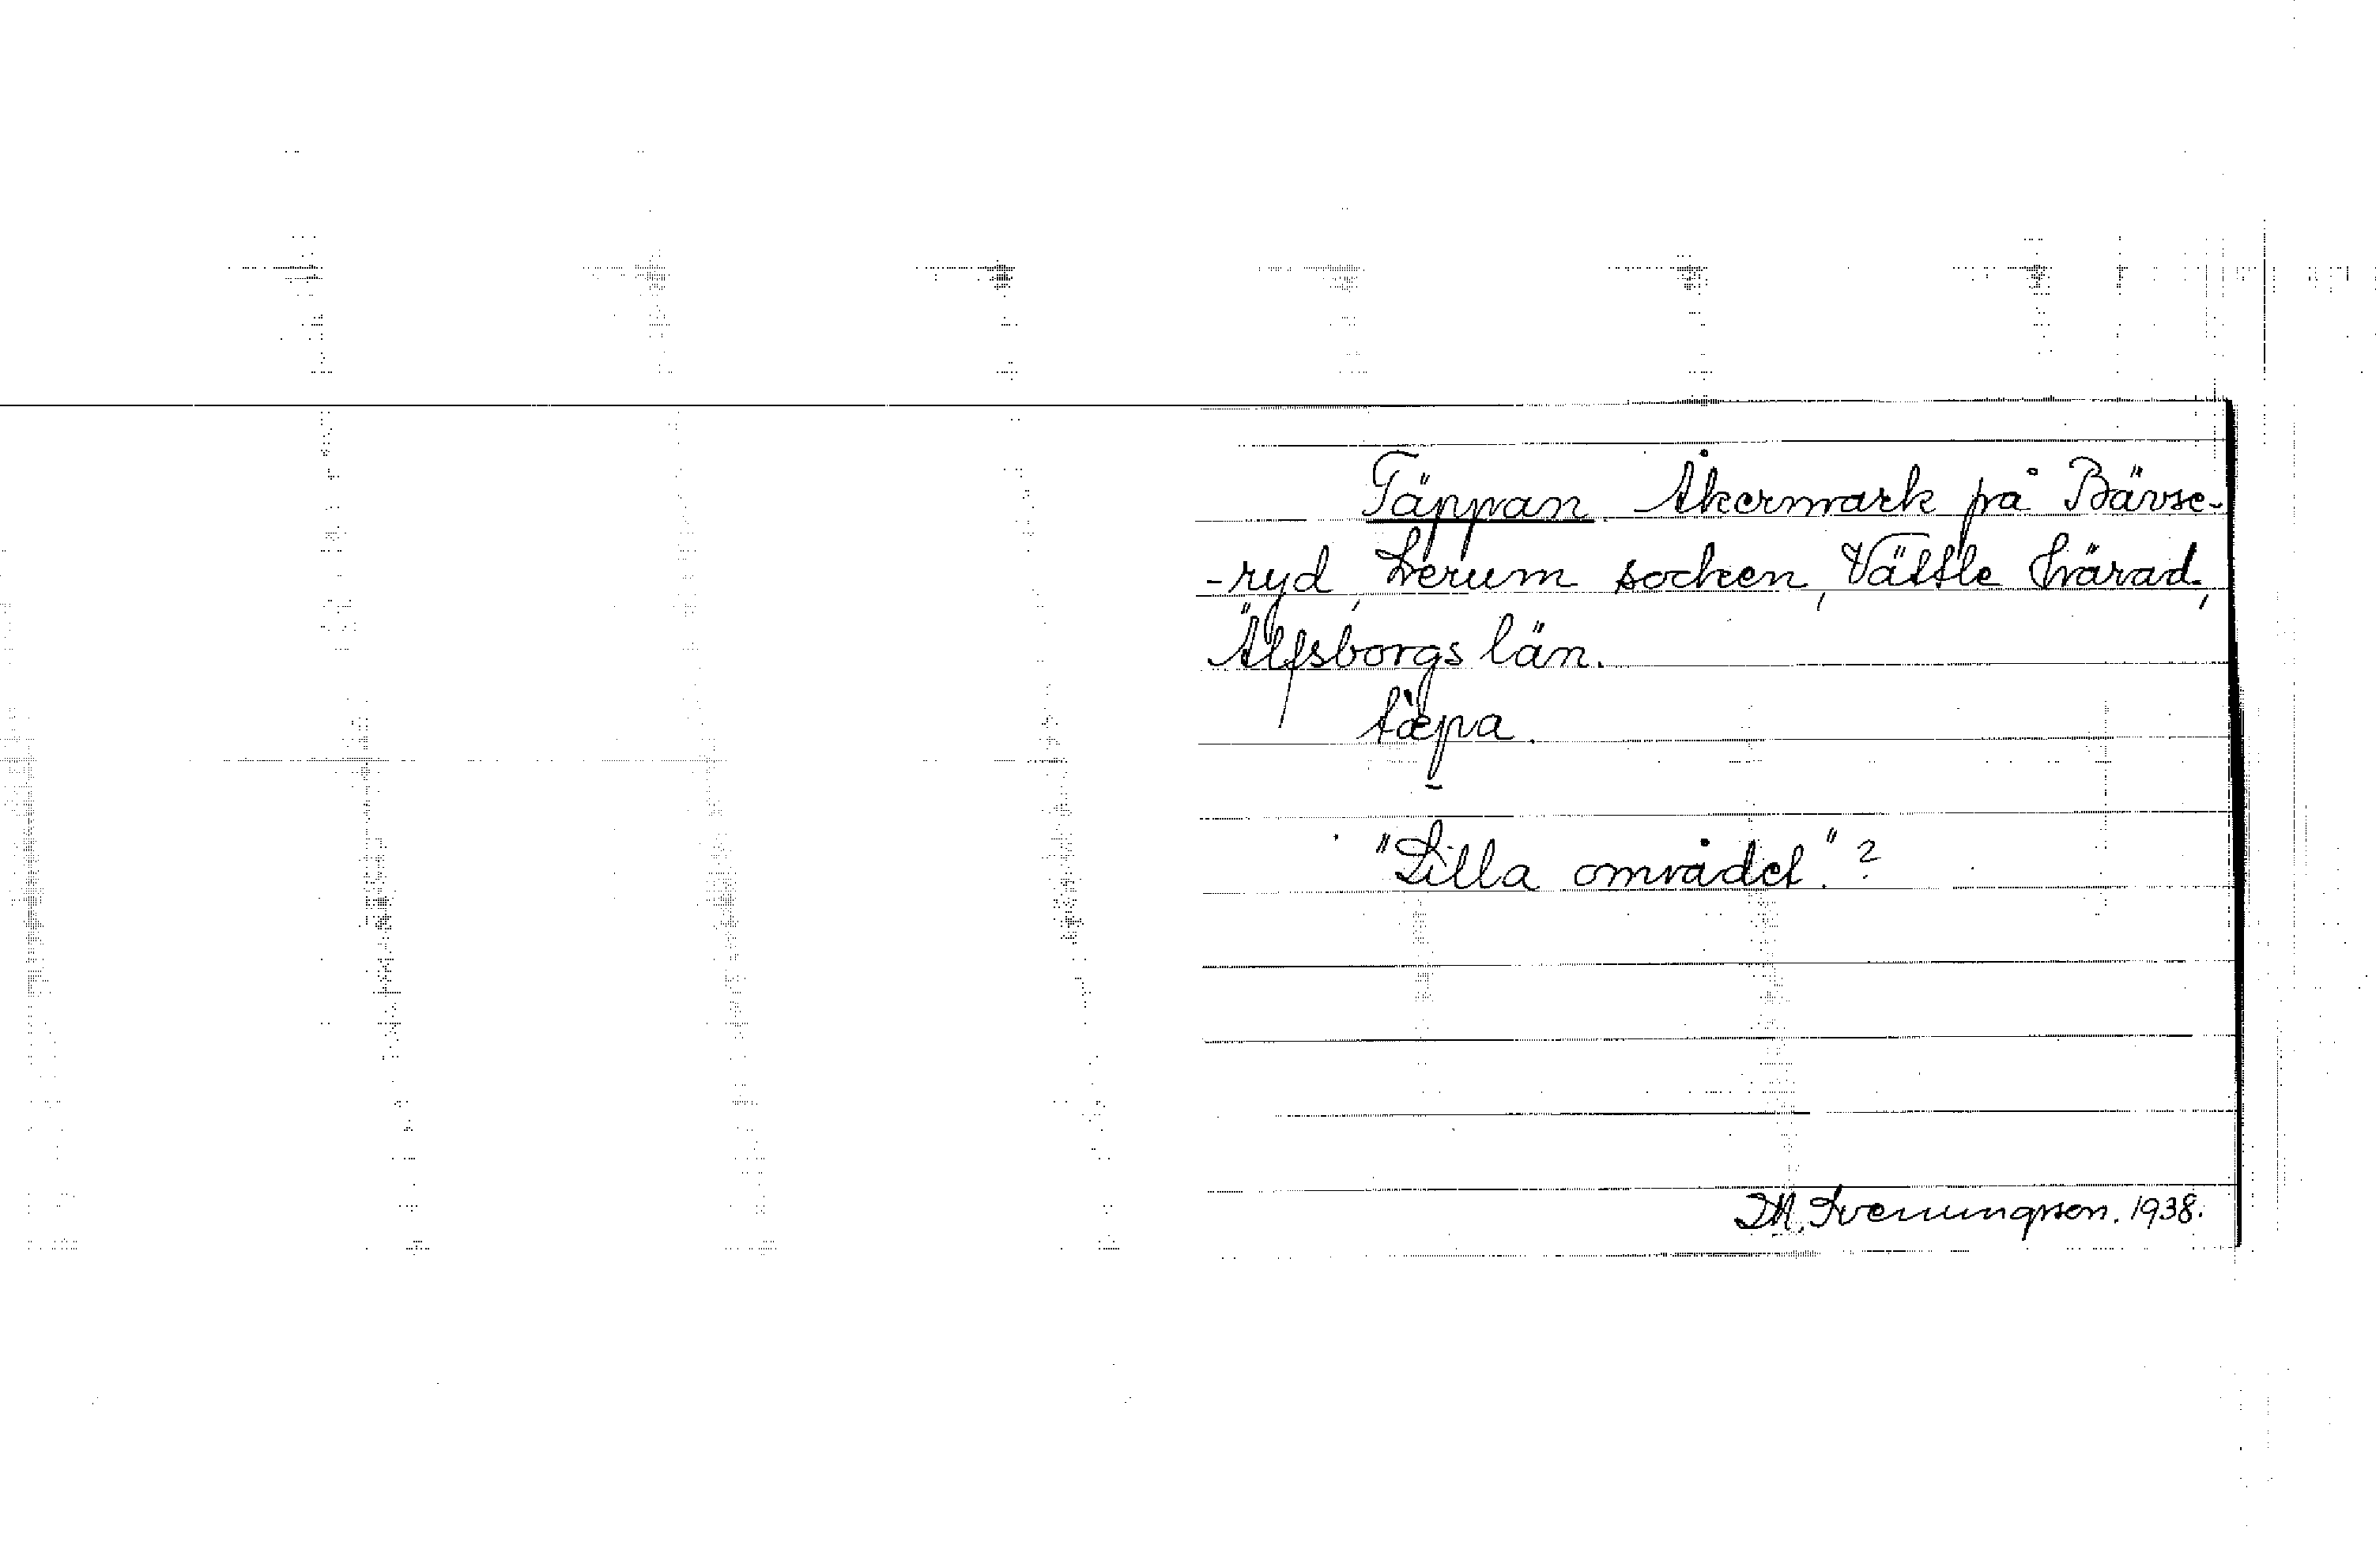 Täppan. Åkermark på Bävse-
-ryd, Lerum socken, Vättle härad,
Älfsborgs län.
tæ̀pa.
"Lilla området."?
D.M. Svenningsson. 1938.